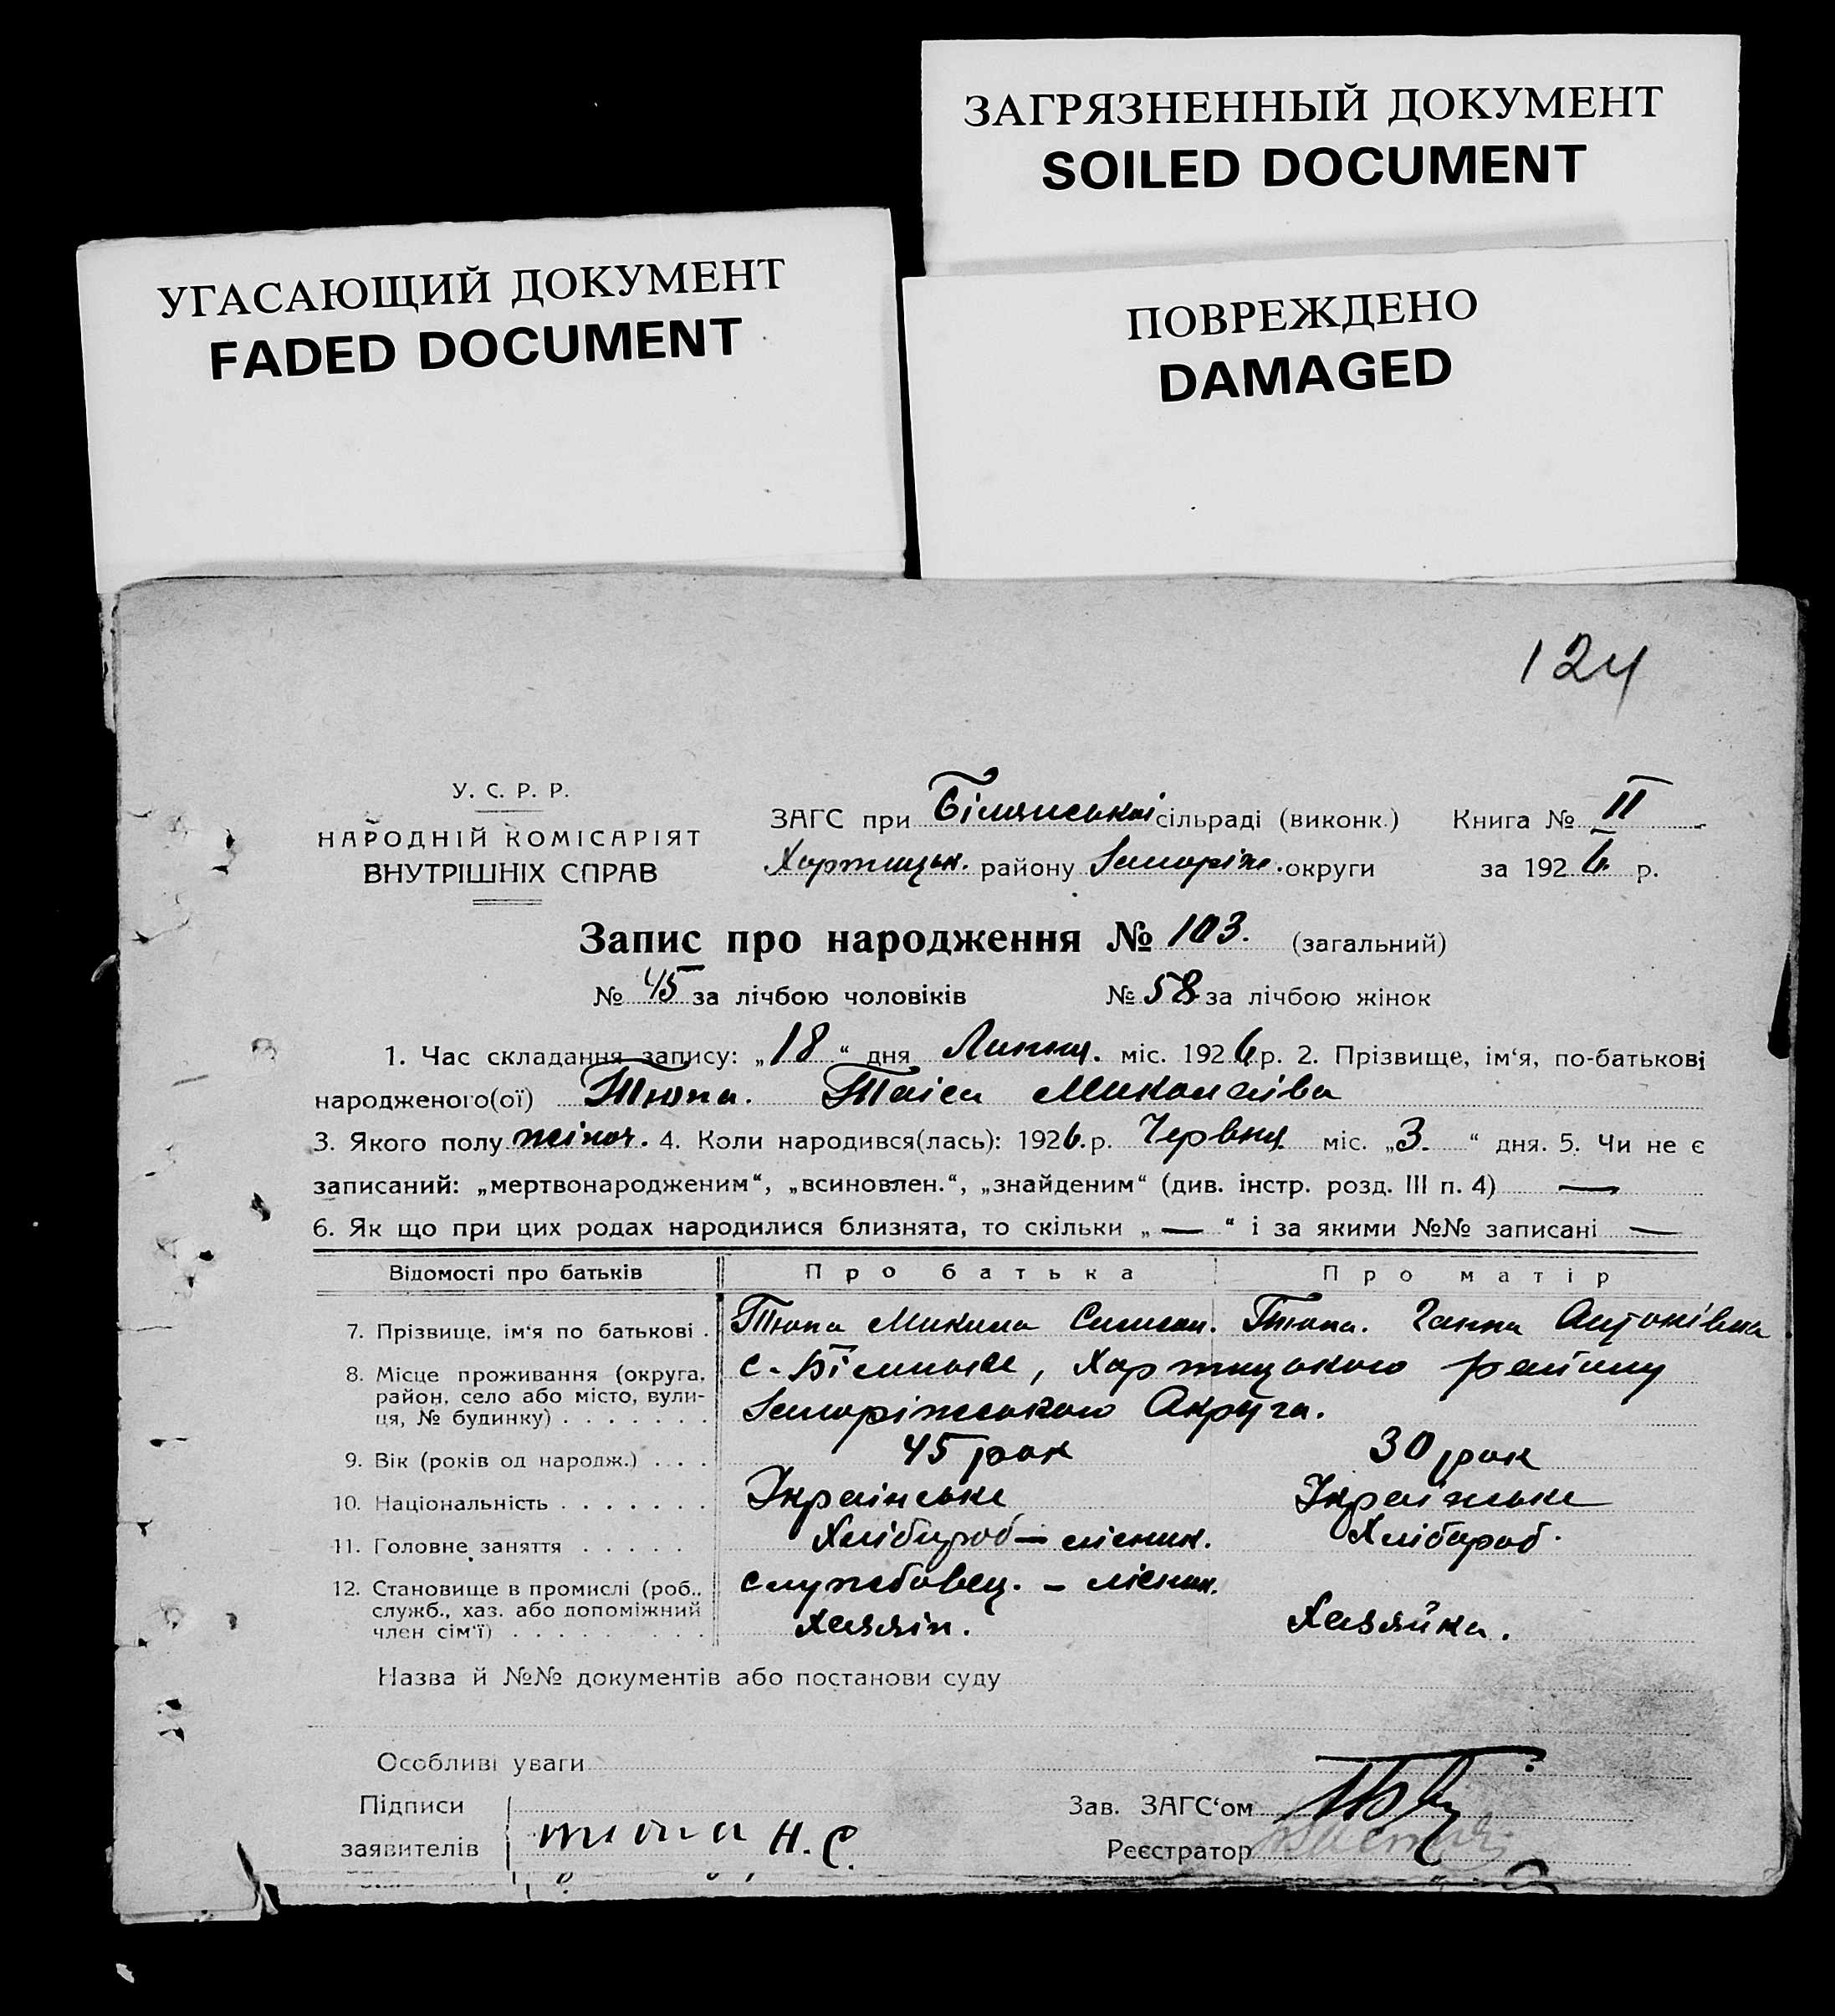 ЗАГРЯЗНЕННЫЙ ДОКУМЕНТ
SOILED DOCUMENT
УГАСАЮЩИЙ ДОКУМЕНТ
FADED DOCUMENT
ПОВРЕЖДЕНО
DAMAGED
124
У. С. Р. Р.
НАРОДНІЙ КОМІСАРІЯТ
ВНУТРІШНІХ СПРАВ
ЗАГС при сільраді (виконк.) Книга № II
Хортицьк. району Запоріж. округи за 1926 р.
Запис про народження № 103. (загальний)
№ 45 за лічбою чоловіків № 58 за лічбою жінок
1. Час складання запису: „18“ дня Липня. міс. 1926 р. 2. Прізвище, ім‘я, по-батькові
народженого(ої) Тюпа. Таіса Миколаіва
3. Якого полу жіноч. 4. Коли народився(лась): 1926. р. Червня міс. „3.“ дня. 5. Чи не є
записаний: „мертвонародженим“, „всиновлен.“, „знайденим“ (див. інстр. розд. III п. 4) —
6. Як що при цих родах народилися близнята, то скільки „—“ і за якими №№ записані —
Відомості про батьків Про батька Про матір
7. Прізвище, ім‘я по батькові . Тюпа Микила Тюпа. Ганна Антонівна
8. Місце проживання (округа, район, село або місто, вулиця, № будинку) . . . . . . . с. Хортицького району
Запоріжського Акруга.
9. Вік (років од народж.) . . . 45 рок 30 рок
10. Національність . . . . . . . Українське Українське
11. Головне заняття . . . . . Хлібороб — лісник. Хлібороб.
12. Становище в промислі (роб., служб., хаз. або допоміжний член сім‘ї) . . . . . . . . службовец. – лісник.
Хазяін. Хазяйка.
Назва й №№ документів або постанови суду
Особливі уваги
Підписи
заявителів тюпа Н. С.
Зав. ЗАГС‘ом
Реєстратор